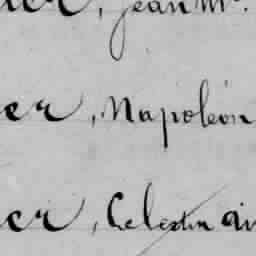 er, Jean M.
er, Napoléon
er, Celestin